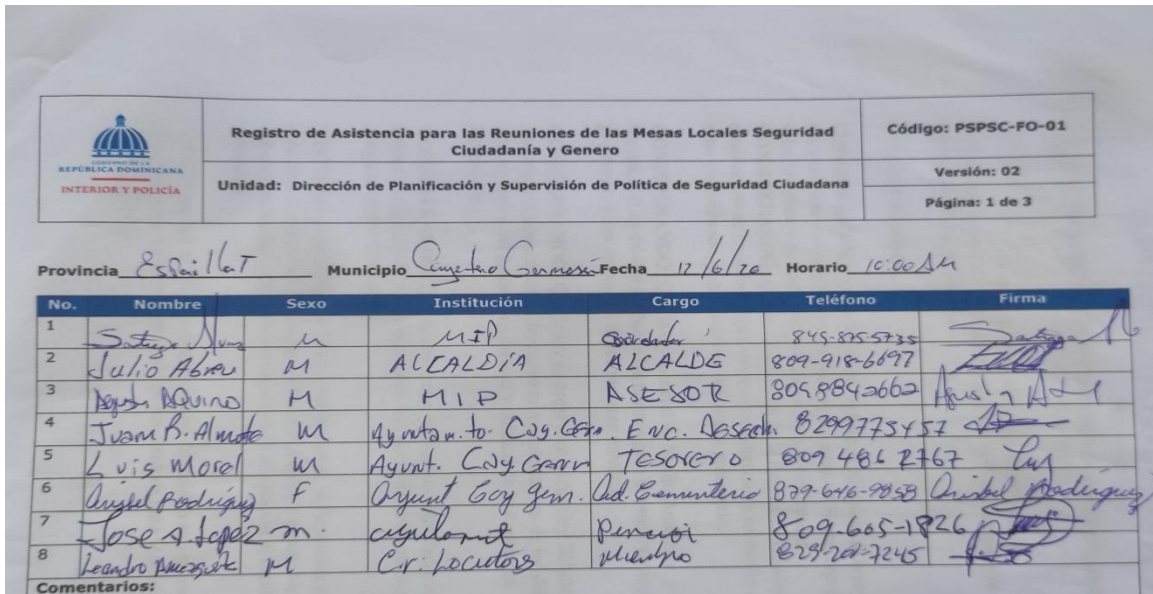 GOBIERNO DE LA
REPÚBLICA DOMINICANA
INTERIOR Y POLICÍA
Registro de Asistencia para las Reuniones de las Mesas Locales Seguridad
Ciudadanía y Genero
Unidad: Dirección de Planificación y Supervisión de Política de Seguridad Ciudadana
Código: PSPSC-FO-01
Versión: 02
Página: 1 de 3
Provincia Espaillat Municipio Fecha 12/6/20 Horario 10:00 AM
No. Nombre Sexo Institución Cargo Teléfono Firma
1 M MIP 849-875-5735
2 Julio Abreu M ALCALDÍA ALCALDE 809-918-6697
3 Agustn AQUINO M MIP ASESOR 8098842662
4 Juan B. M Ayuntam.to. Cay. Enc. 8299773457
5 Luis Morel M Ayunt. Cay. Germ TESORERO 809 486 2767 Luis
6 Rodríguez F Ayunt Cay Germ. Cementerio 829-646-9858 Rodríguez
7 Jose A. Lopéz m. 809-605-1826
8 Leandro M Locutors Miembro 829-201-7245
Comentarios: